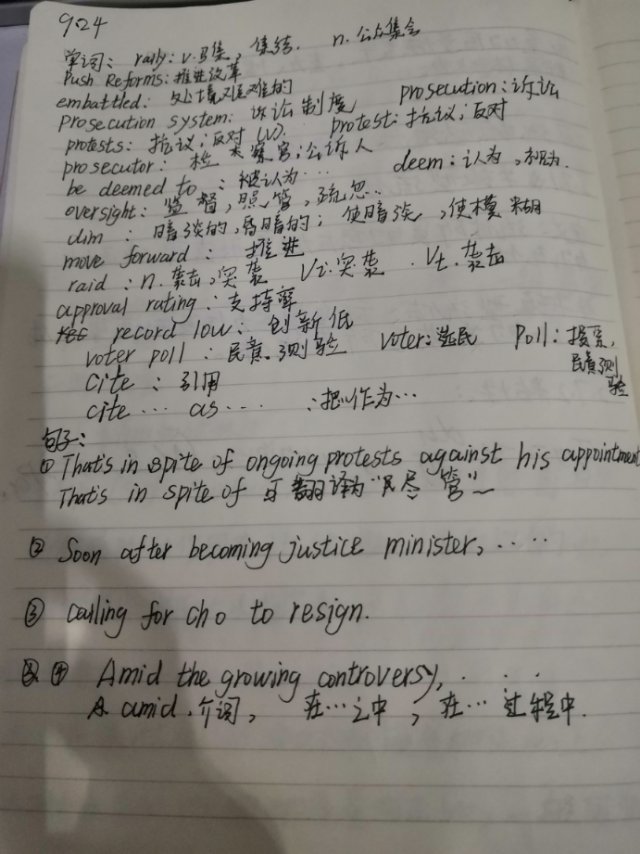 9.24
单词: rally: v.召集, 集结. n.公众集会
Push Reforms: 推进改革
embattled: 处境艰难的
prosecution system: 诉讼制度 prosecution: 诉讼
protests: 抗议; 反对 (v). protest: 抗议; 反对
prosecutor: 检察官; 公诉人
be deemed to: 被认为… deem: 认为, 视为.
oversight: 监督, 照管, 疏忽.
dim: 暗淡的, 昏暗的; 使暗淡, 使模糊
move forward: 推进
raid: n. 袭击, 突袭 Vi. 突袭. Vt. 袭击
approval rating: 支持率
record low: 创新低
voter poll: 民意测验 voter: 选民 Poll:
民意测验
cite: 引用
cite … as …. : 把..作为…
句子:
① That's in spite of ongoing protests against his appointment
That's in spite of 可翻译为 "尽管"
② Soon after becoming justice minister, .....
③ Calling for Cho to resign.
④ Amid the growing controversy, . . .
amid. 介词, 在…之中, 在…过程中.